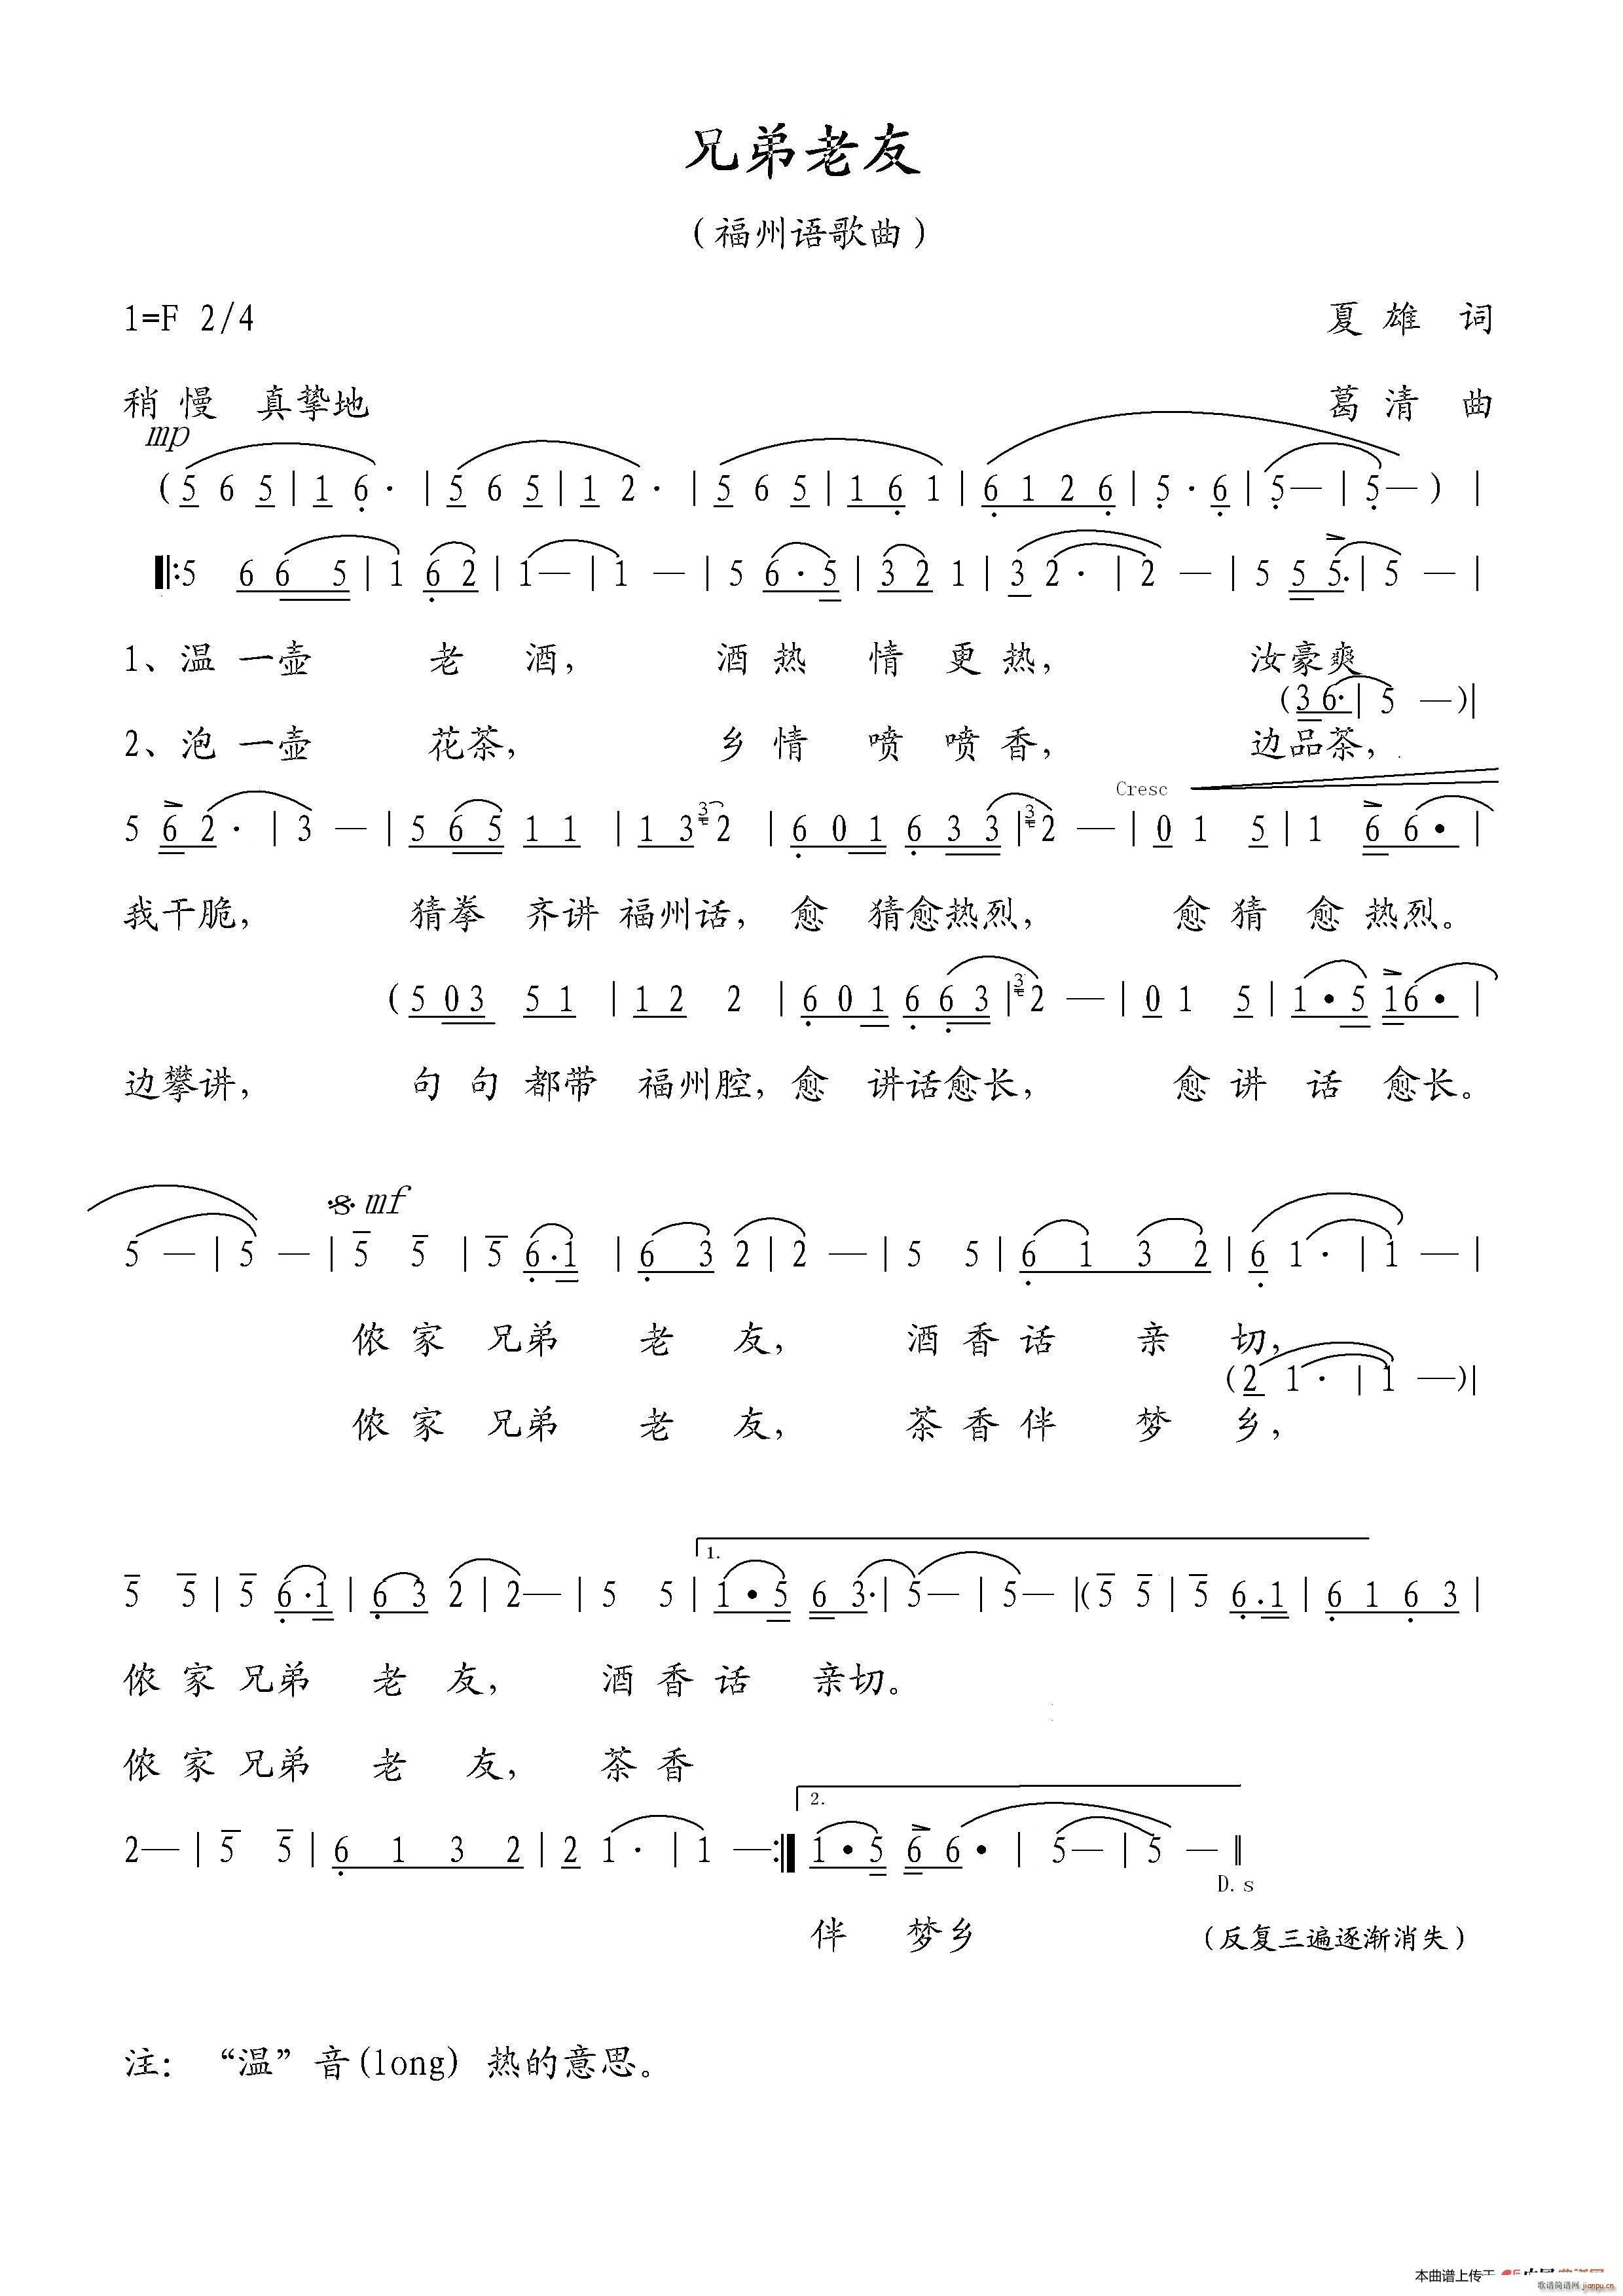 兄弟老友
（福州语歌曲）
1=F 2/4
夏 雄 词
稍 慢 真挚地
葛 清 曲
mp
(5 6 5 | 1 6 · | 5 6 5 | 1 2 · | 5 6 5 | 1 6 1 | 6 1 2 6 | 5 · 6 | 5 — | 5 — ) |
‖: 5 6 6 5 | 1 6 2 | 1 — | 1 — | 5 6 · 5 | 3 2 1 | 3 2 · | 2 — | 5 5 5 · | 5 — |
1、温 一壶 老 酒， 酒 热 情 更 热， 汝豪爽
(3 6 · | 5 — ) |
2、泡 一壶 花茶， 乡 情 喷 喷 香， 边品茶，
Cresc
5 6 2 · | 3 — | 5 6 5 1 1 | 1 3 3 2 | 6 0 1 6 3 3 | 3 2 — | 0 1 5 | 1 6 6 · |
我干脆， 猜拳 齐讲 福州话， 愈 猜愈热烈， 愈 猜 愈 热烈。
(5 0 3 5 1 | 1 2 2 | 6 0 1 6 6 3 | 3 2 — | 0 1 5 | 1 · 5 1 6 · |
边攀讲， 句 句 都带 福州腔， 愈 讲话愈长， 愈 讲 话 愈长。
mf
5 — | 5 — | 5 5 | 5 6 · 1 | 6 3 2 | 2 — | 5 5 | 6 1 3 2 | 6 1 · | 1 — |
侬 家 兄弟 老 友， 酒 香 话 亲 切，
(2 1 · | 1 — ) |
侬 家 兄弟 老 友， 茶 香 伴 梦 乡，
1.
5 5 | 5 6 · 1 | 6 3 2 | 2 — | 5 5 | 1 · 5 6 3 · | 5 — | 5 — | (5 5 | 5 6 · 1 | 6 1 6 3 |
侬 家 兄弟 老 友， 酒 香 话 亲切。
侬 家 兄弟 老 友， 茶 香
2.
2 — | 5 5 | 6 1 3 2 | 2 1 · | 1 — :‖ 1 · 5 6 6 · | 5 — | 5 — ‖
D.s
伴 梦乡 （反复三遍逐渐消失）
注： “温”音(long) 热的意思。
本曲谱上传于
歌谱简谱网 jianpu.cn